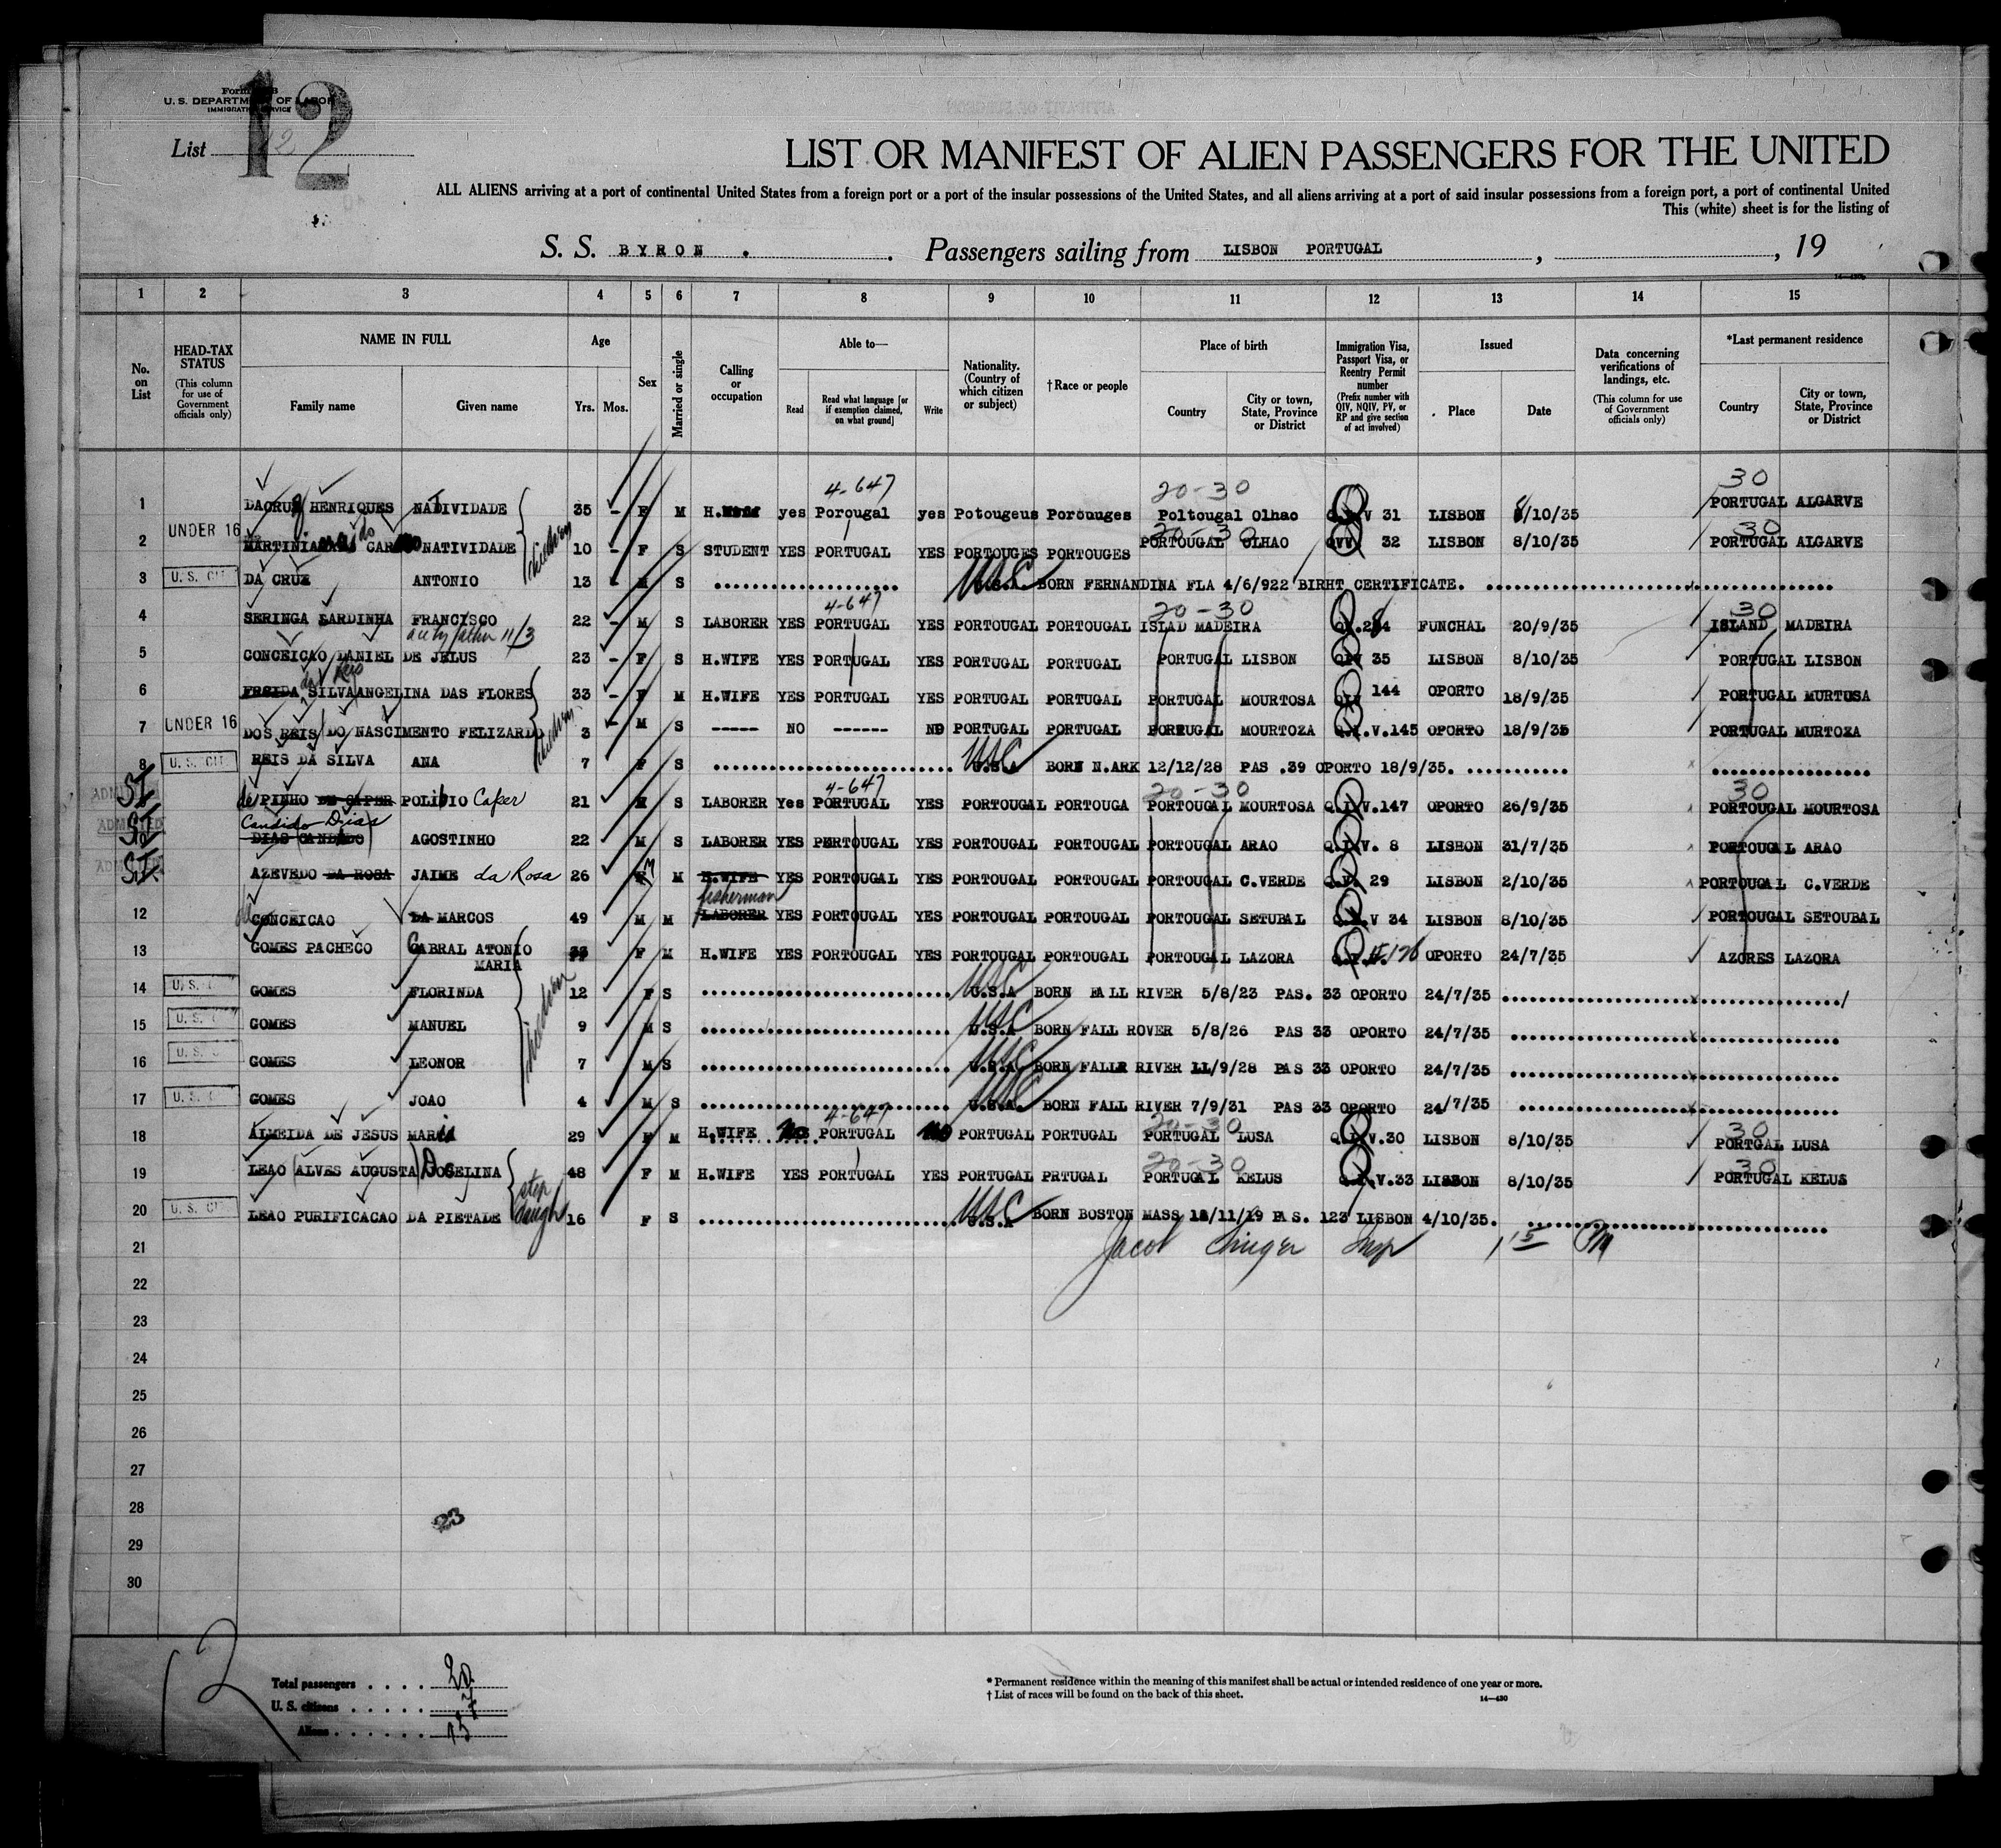 Form
U. S. DEPARTMENT OF LABOR
IMMIGRATION SERVICE
12
List 12
LIST OR MANIFEST OF ALIEN PASSENGERS FOR THE UNITED
ALL ALIENS arriving at a port of continental United States from a foreign port or a port of the insular possessions of the United States, and all aliens arriving at a port of said insular possessions from a foreign port, a port of continental United
This (white) sheet is for the listing of
S. S. BYRON . Passengers sailing from LISBON PORTUGAL , , 19
1 2 3 4 5 6 7 8 9 10 11 12 13 14 15
No. on List
HEAD-TAX STATUS (This column for use of Government officials only)
NAME IN FULL Family name Given name
Age Yrs. Mos.
Sex
Married or single
Calling or occupation
Able to— Read Read what language [or if exemption claimed, on what ground] Write
Nationality. (Country of which citizen or subject)
†Race or people
Place of birth Country City or town, State, Province or District
Immigration Visa, Passport Visa, or Reentry Permit number (Prefix number with QIV, NQIV, PV, or RP and give section of act involved)
Issued Place Date
Data concerning verifications of landings, etc. (This column for use of Government officials only)
*Last permanent residence Country City or town, State, Province or District
4-647 20-30 30
1 DACRUZ HENRIQUES NATIVIDADE 35 - F M H. yes Porougal yes Potougeus Porouuges Poltougal Olhao V 31 LISBON 8/10/35 PORTUGAL ALGARVE
children
20-30 30
2 UNDER 16 NATIVIDADE 10 - F S STUDENT YES PORTUGAL YES PORTOUGES PORTOUGES PORTOUGAL OLHAO 32 LISBON 8/10/35 PORTUGAL ALGARVE
3 U. S. CIT DA CRUZ ANTONIO 13 - M S U.S.A USC BORN FERNANDINA FLA 4/6/922 BIRHT CERTIFICATE.
4-647 20-30 30
4 SERINGA SARDINHA FRANCISCO 22 - M S LABORER YES PORTUGAL YES PORTOUGAL PORTOUGAL ISLAD MADEIRA FUNCHAL 20/9/35 ISLAND MADEIRA
father 11/3
5 CONCEICAO DANIEL DE JELUS 23 - F S H.WIFE YES PORTUGAL YES PORTUGAL PORTUGAL PORTUGAL LISBON 35 LISBON 8/10/35 PORTUGAL LISBON
dos Reis
6 SILVA ANGELINA DAS FLORES 33 - F M H.WIFE YES PORTUGAL YES PORTUGAL PORTUGAL PORTUGAL MOURTOSA 144 OPORTO 18/9/35 PORTUGAL MURTUSA
children
7 UNDER 16 DOS REIS DO NASCIMENTO FELIZARDO 3 - M S ----- NO ------ NO PORTUGAL PORTUGAL PORTUGAL MOURTOZA Q.I.V.145 OPORTO 18/9/35 PORTUGAL MURTOZA
8 U. S. CIT REIS DA SILVA ANA 7 F S U.S.A USC BORN N.ARK 12/12/28 PAS .39 OPORTO 18/9/35.
4-647 20-30 30
SI ADMITTED de PINHO DE CAPER POLIBIO Caper 21 M S LABORER Yes PORTUGAL YES PORTOUGAL PORTOUGA PORTOUGAL MOURTOSA Q.I.V.147 OPORTO 26/9/35 PORTOUGAL MOURTOSA
Candido Dias
SI ADMITTED DIAS CANDIDO AGOSTINHO 22 M S LABORER YES PERTOUGAL YES PORTOUGAL PORTOUGAL PORTOUGAL ARAO Q.I.V. 8 LISBON 31/7/35 PORTOUGAL ARAO
SI AZEVEDO DA ROSA JAIME da Rosa 26 M M H.WIFE YES PORTOUGAL YES PORTOUGAL PORTOUGAL PORTOUGAL C.VERDE 29 LISBON 2/10/35 PORTOUGAL C.VERDE
fisherman
12 CONCEICAO DA MARCOS 49 M M LABORER YES PORTOUGAL YES PORTOUGAL PORTOUGAL PORTOUGAL SETUBAL V 34 LISBON 8/10/35 PORTOUGAL SETOUBAL
13 GOMES PACHECO CABRAL ATONIO MARIA F M H.WIFE YES PORTOUGAL YES PORTOUGAL PORTOUGAL PORTOUGAL LAZORA 126 OPORTO 24/7/35 AZORES LAZORA
children
14 U. S. GOMES FLORINDA 12 F S U.S.A USC BORN FALL RIVER 5/8/23 PAS. 33 OPORTO 24/7/35
15 U. S. GOMES MANUEL 9 M S U.S.A USC BORN FALL ROVER 5/8/26 PAS 33 OPORTO 24/7/35
16 U. S. GOMES LEONOR 7 M S U.S.A USC BORN FALLR RIVER 11/9/28 PAS 33 OPORTO 24/7/35
17 U. S. GOMES JOAO 4 M S U.S.A. USC BORN FALL RIVER 7/9/31 PAS 33 OPORTO 24/7/35
4-647 20-30 30
18 ALMEIDA DE JESUS MARIA 29 F M H.WIFE No PORTUGAL No PORTUGAL PORTUGAL PORTUGAL LUSA Q.I.V.30 LISBON 8/10/35 PORTGAL LUSA
20-30 30
19 LEAO (ALVES AUGUSTA) JOSELINA 48 F M H.WIFE YES PORTUGAL YES PORTUGAL PRTUGAL PORTUGAL KELUS Q.I.V.33 LISBON 8/10/35 PORTUGAL KELUS
step daugh
20 U. S. CIT LEAO PURIFICACAO DA PIETADE 16 F S U.S.A USC BORN BOSTON MASS 12/11/19 PAS. 123 LISBON 4/10/35.
21 Jacob Singer Insp 1 15 PM
22
23
24
25
26
27
28
23
29
30
12
Total passengers . . . . 20
U. S. citizens . . . . . 7
Aliens . . . . . . 13
* Permanent residence within the meaning of this manifest shall be actual or intended residence of one year or more.
† List of races will be found on the back of this sheet.
14—430